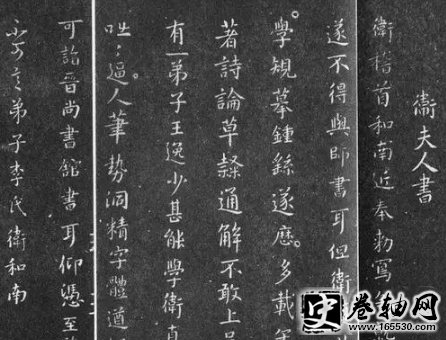 衛夫人書
衛稽首和南近奉勅寫
遂不得與師書耳但衛
學規摹鍾繇遂歷多載
著詩論草隸通解不敢上
有一弟子王逸少甚能學衛真
咄咄逼人筆勢洞精字體遒
可詣晉尚書館書耳仰憑至
不可言弟子李氏衛和南
史
卷轴网
www.165530.com